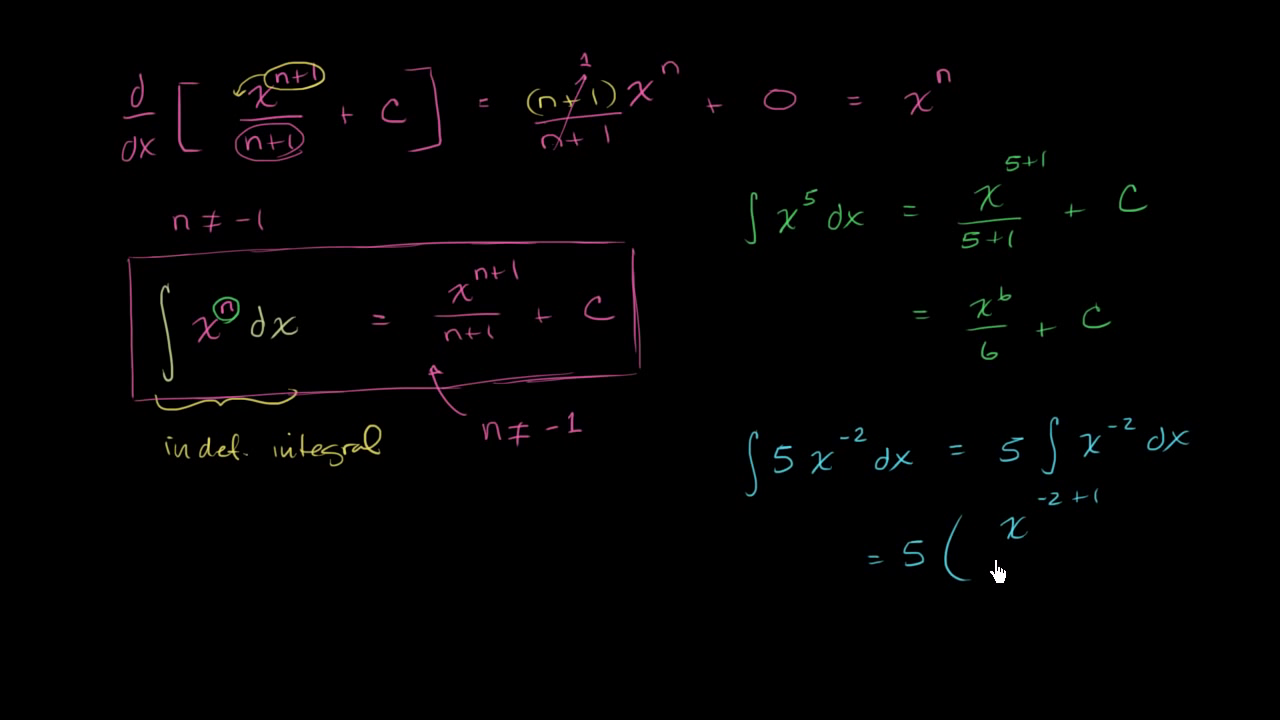 d/dx [ x^(n+1)/(n+1) + C ] = (n+1)x^n/(n+1) 1 + 0 = x^n
n ≠ -1
∫ x^n dx = x^(n+1)/(n+1) + C
n ≠ -1
indef. integral
∫ x^5 dx = x^(5+1)/(5+1) + C
= x^6/6 + C
∫ 5 x^-2 dx = 5 ∫ x^-2 dx
= 5 ( x^(-2+1)